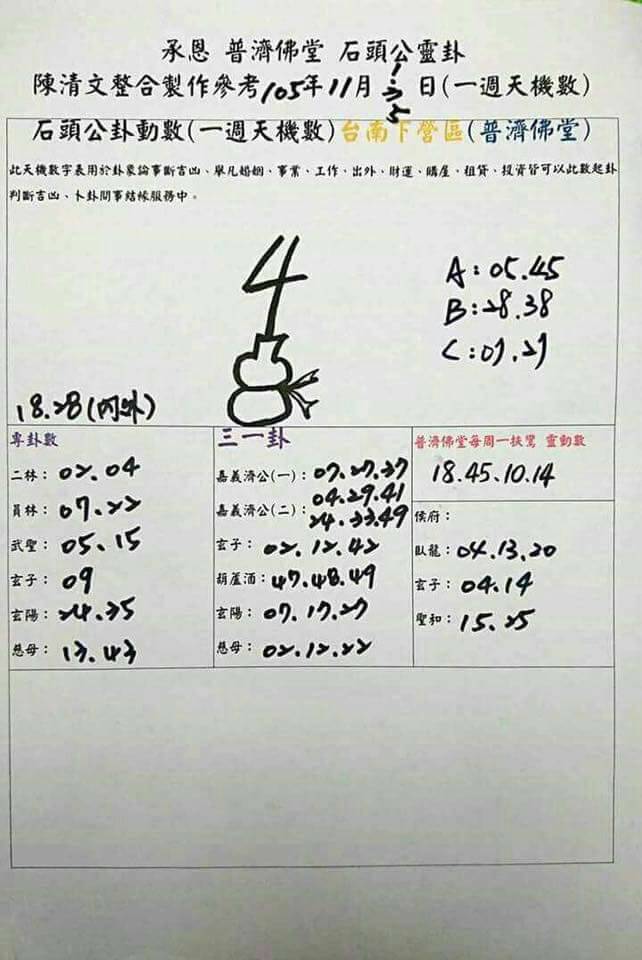 承恩 普濟佛堂 石頭公靈卦
陳清文整合製作參考105年11月1.3.5日(一週天機數)
石頭公卦動數(一週天機數)台南下營區(普濟佛堂)
此天機数字表用於卦象論事斷吉凶、舉凡婚姻、事業、工作、出外、財運、購屋、租貸、投資皆可以此數起卦
判斷吉凶、卜卦問事結帳服務中。
4
A:05.45
B:28.38
C:07.27
18.28(內外)
專卦數
二林:02.04
員林:07.22
武聖:05.15
玄子:09
玄陽:24.35
慈母:13.43
三一卦
嘉義濟公(一):07.27.37
嘉義濟公(二):04.29.41
24.33.49
玄子:02.12.42
葫蘆酒:47.48.49
玄陽:07.17.27
慈母:02.12.22
普濟佛堂每周一扶鸞 靈動數
18.45.10.14
侯府:
臥龍:04.13.20
玄子:04.14
聖和:15.25